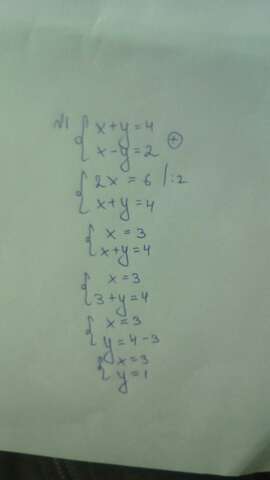 №1 { x+y=4
x-y=2 ⊕
{ 2x = 6 |:2
x+y=4
{ x = 3
x+y=4
{ x=3
3+y=4
{ x=3
y=4-3
{ x=3
y=1